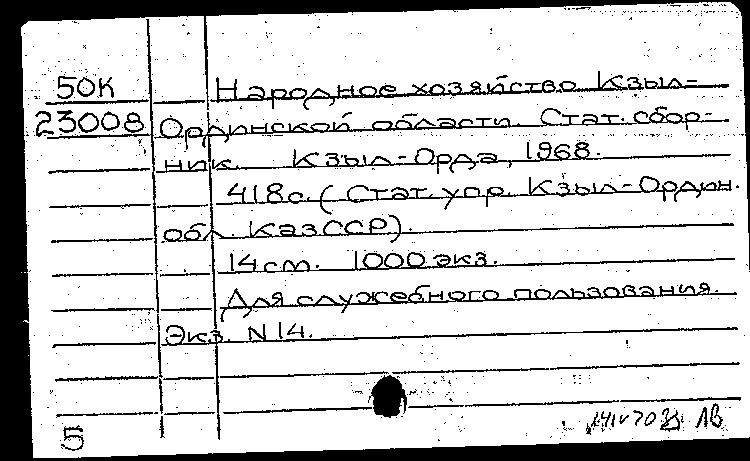 50К Народное хозяйство Кзыл-
23008 Ординской области. Стат. сбор-
ник. Кзыл-Орда, 1968.
418с. (Стат. упр. Кзыл-Ордин.
обл. КазССР).
14см. 1000 экз.
Для служебного пользования.
Экз. N 14.
5 ЛВ